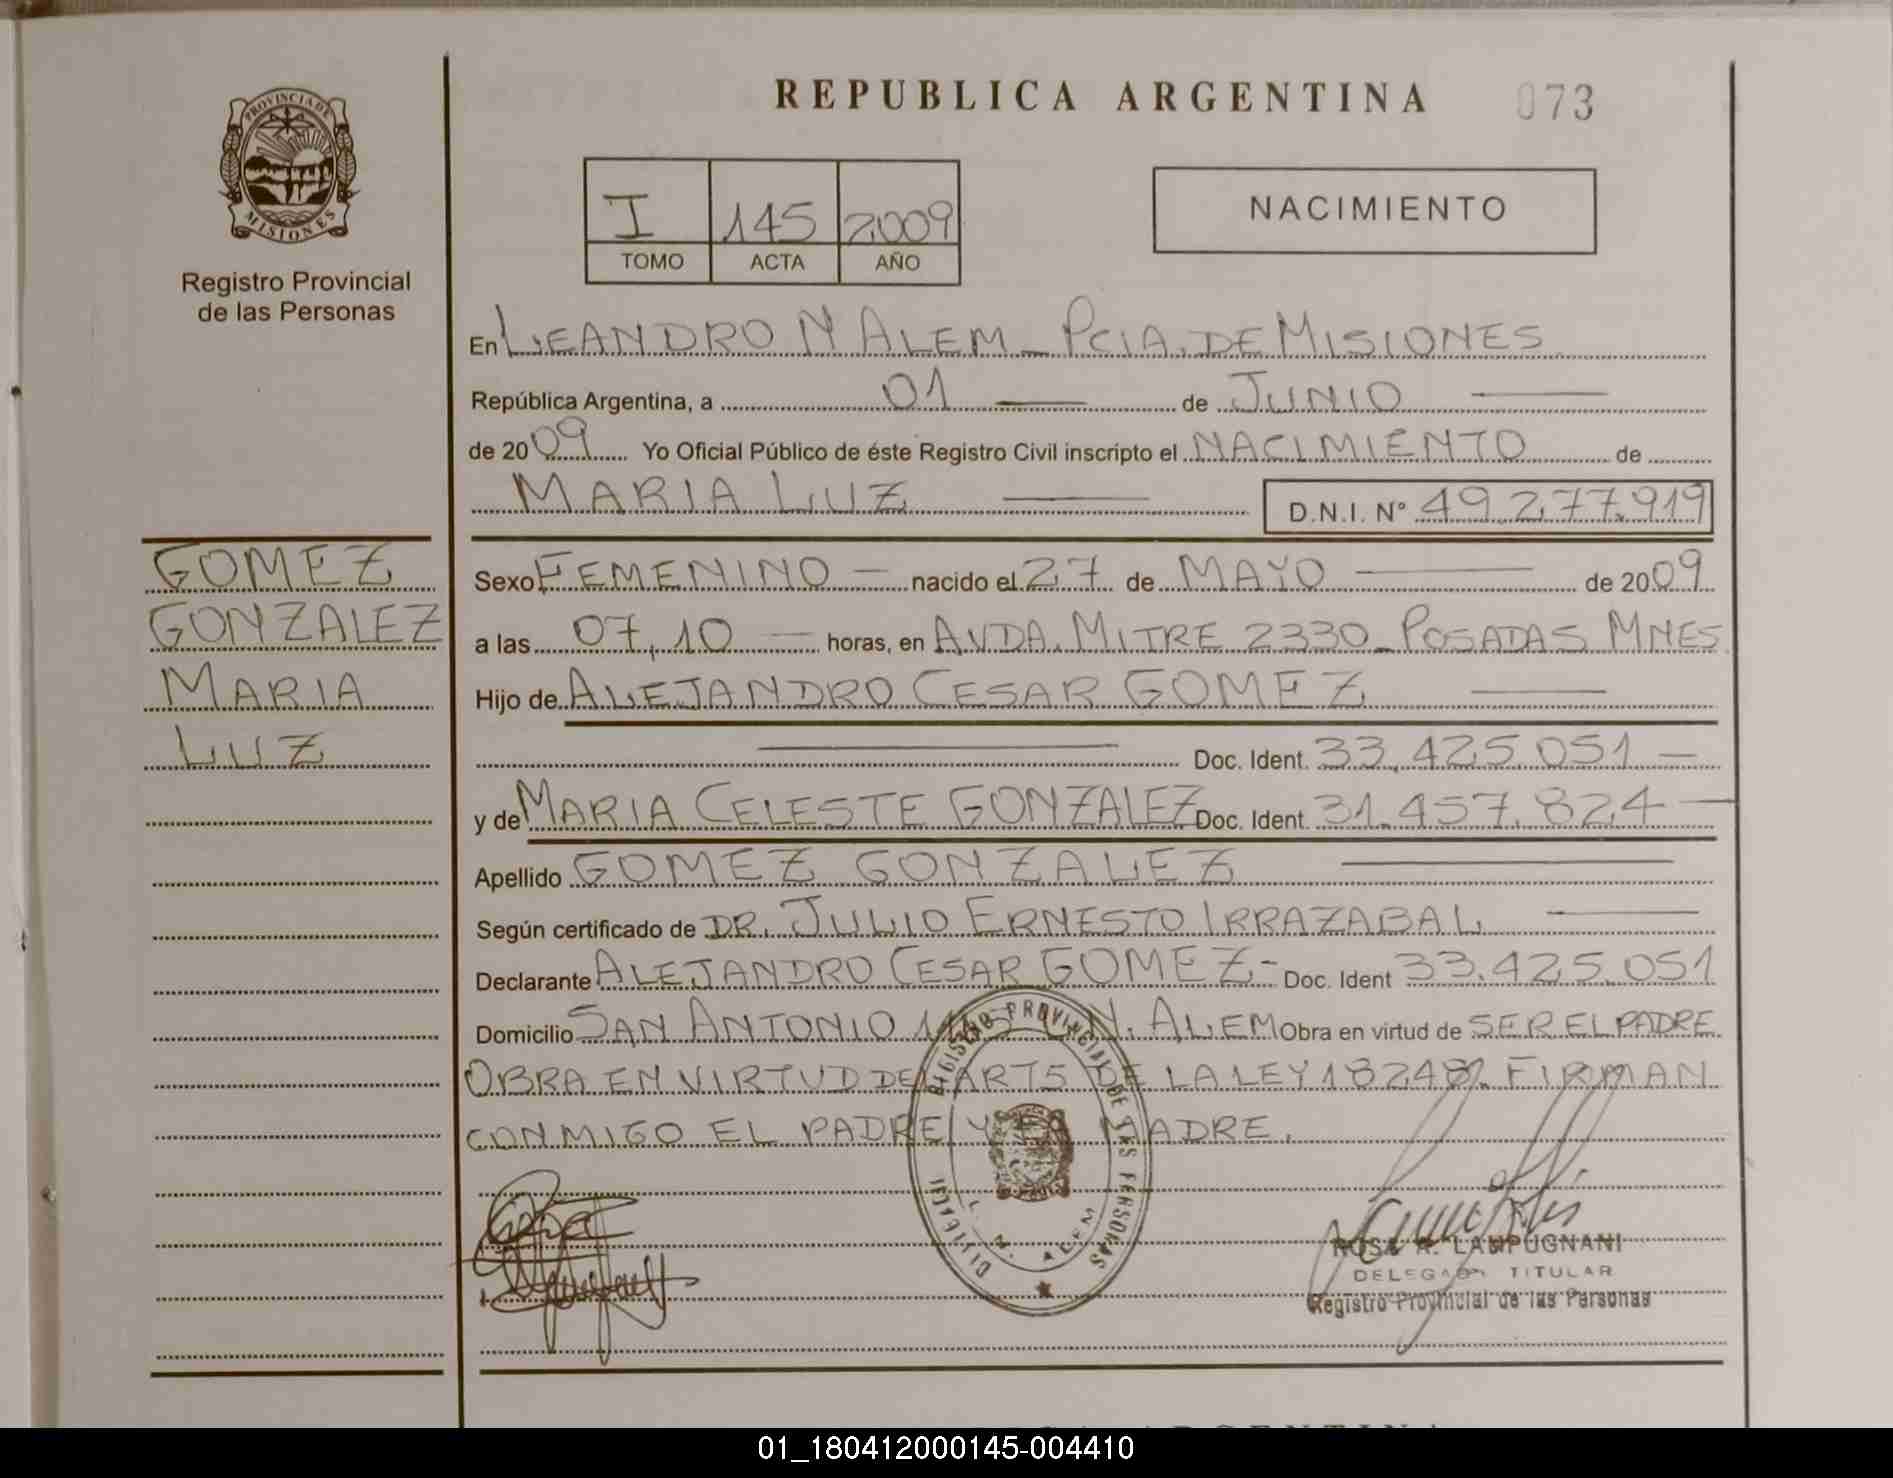 REPUBLICA ARGENTINA 073
PROVINCIA DE
MISIONES
Registro Provincial
de las Personas
I 145 2009
TOMO ACTA AÑO
NACIMIENTO
En LEANDRO N ALEM - PCIA. DE MISIONES
República Argentina, a 01 de JUNIO
de 2009 Yo Oficial Público de éste Registro Civil inscripto el NACIMIENTO de
MARIA LUZ D.N.I. N° 49.277.919
GOMEZ
GONZALEZ
MARIA
LUZ
Sexo FEMENINO - nacido el 27 de MAYO de 2009
a las 07,10 - horas, en AVDA. MITRE 2330 - POSADAS MNES
Hijo de ALEJANDRO CESAR GOMEZ
Doc. Ident. 33.425.051 -
y de MARIA CELESTE GONZALEZ Doc. Ident. 31.457.824 -
Apellido GOMEZ GONZALEZ
Según certificado de DR. JULIO ERNESTO IRRAZABAL
Declarante ALEJANDRO CESAR GOMEZ - Doc. Ident 33.425.051
Domicilio SAN ANTONIO N. ALEM Obra en virtud de SER EL PADRE
OBRA EN VIRTUD DE ARTS DE LA LEY 18248. FIRMAN
CONMIGO EL PADRE Y MADRE.
REGISTRO PROVINCIAL DE LAS PERSONAS
L. N. ALEM
ROSA A. LAMPUGNANI
DELEGADA TITULAR
Registro Provincial de las Personas
01_180412000145-004410